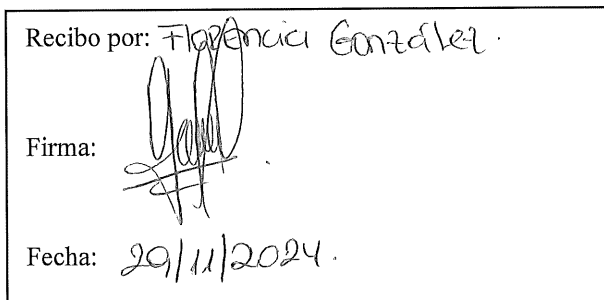 Recibo por: Florencia González.
Firma:
Fecha: 29/11/2024.